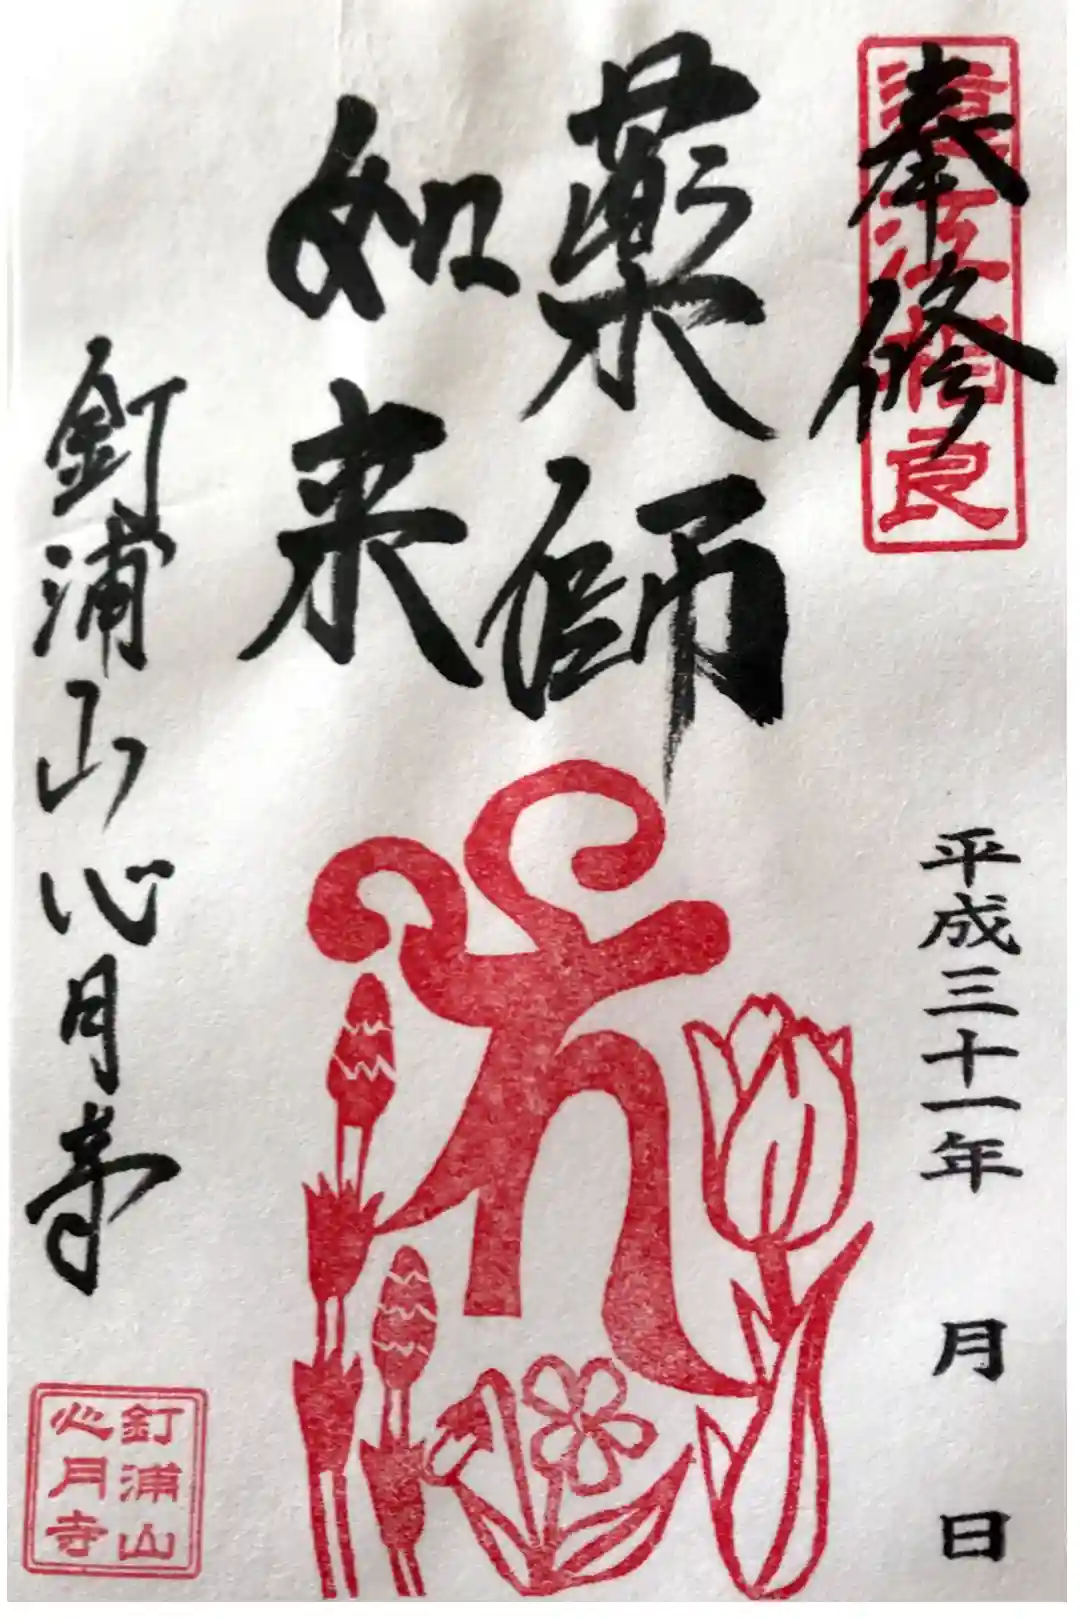 奉修
遠江相良
平成三十一年 月 日
薬師
如来
釘浦山心月寺
釘浦山
心月寺